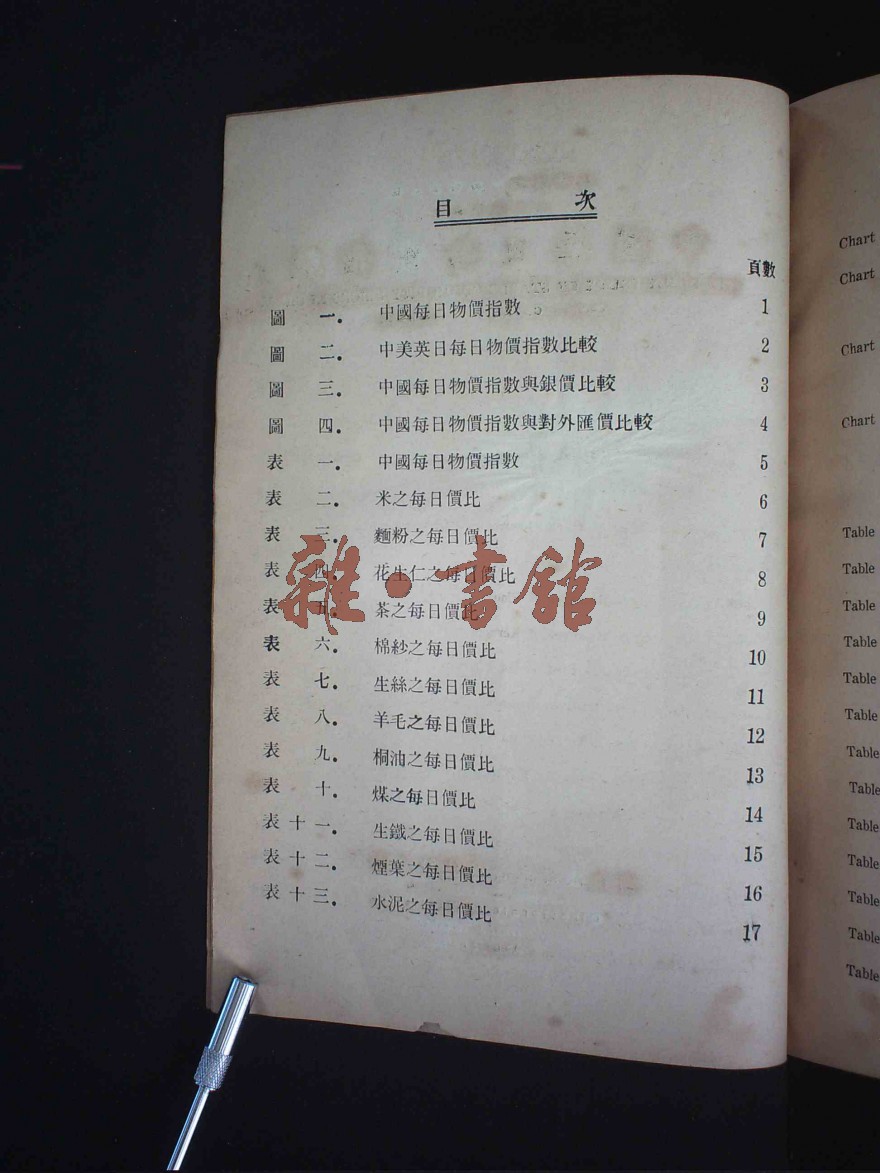 目 次
頁數
圖 一. 中國每日物價指數 1
圖 二. 中美英日每日物價指數比較 2
圖 三. 中國每日物價指數與銀價比較 3
圖 四. 中國每日物價指數與對外匯價比較 4
表 一. 中國每日物價指數 5
表 二. 米之每日價比 6
表 三. 麵粉之每日價比 7
表 四. 花生仁之每日價比 8
表 五. 茶之每日價比 9
表 六. 棉紗之每日價比 10
表 七. 生絲之每日價比 11
表 八. 羊毛之每日價比 12
表 九. 桐油之每日價比 13
表 十. 煤之每日價比 14
表十一. 生鐵之每日價比 15
表十二. 煙葉之每日價比 16
表十三. 水泥之每日價比 17
雜·書館
Chart
Chart
Chart
Chart
Table
Table
Table
Table
Table
Table
Table
Table
Table
Table
Table
Table
Table